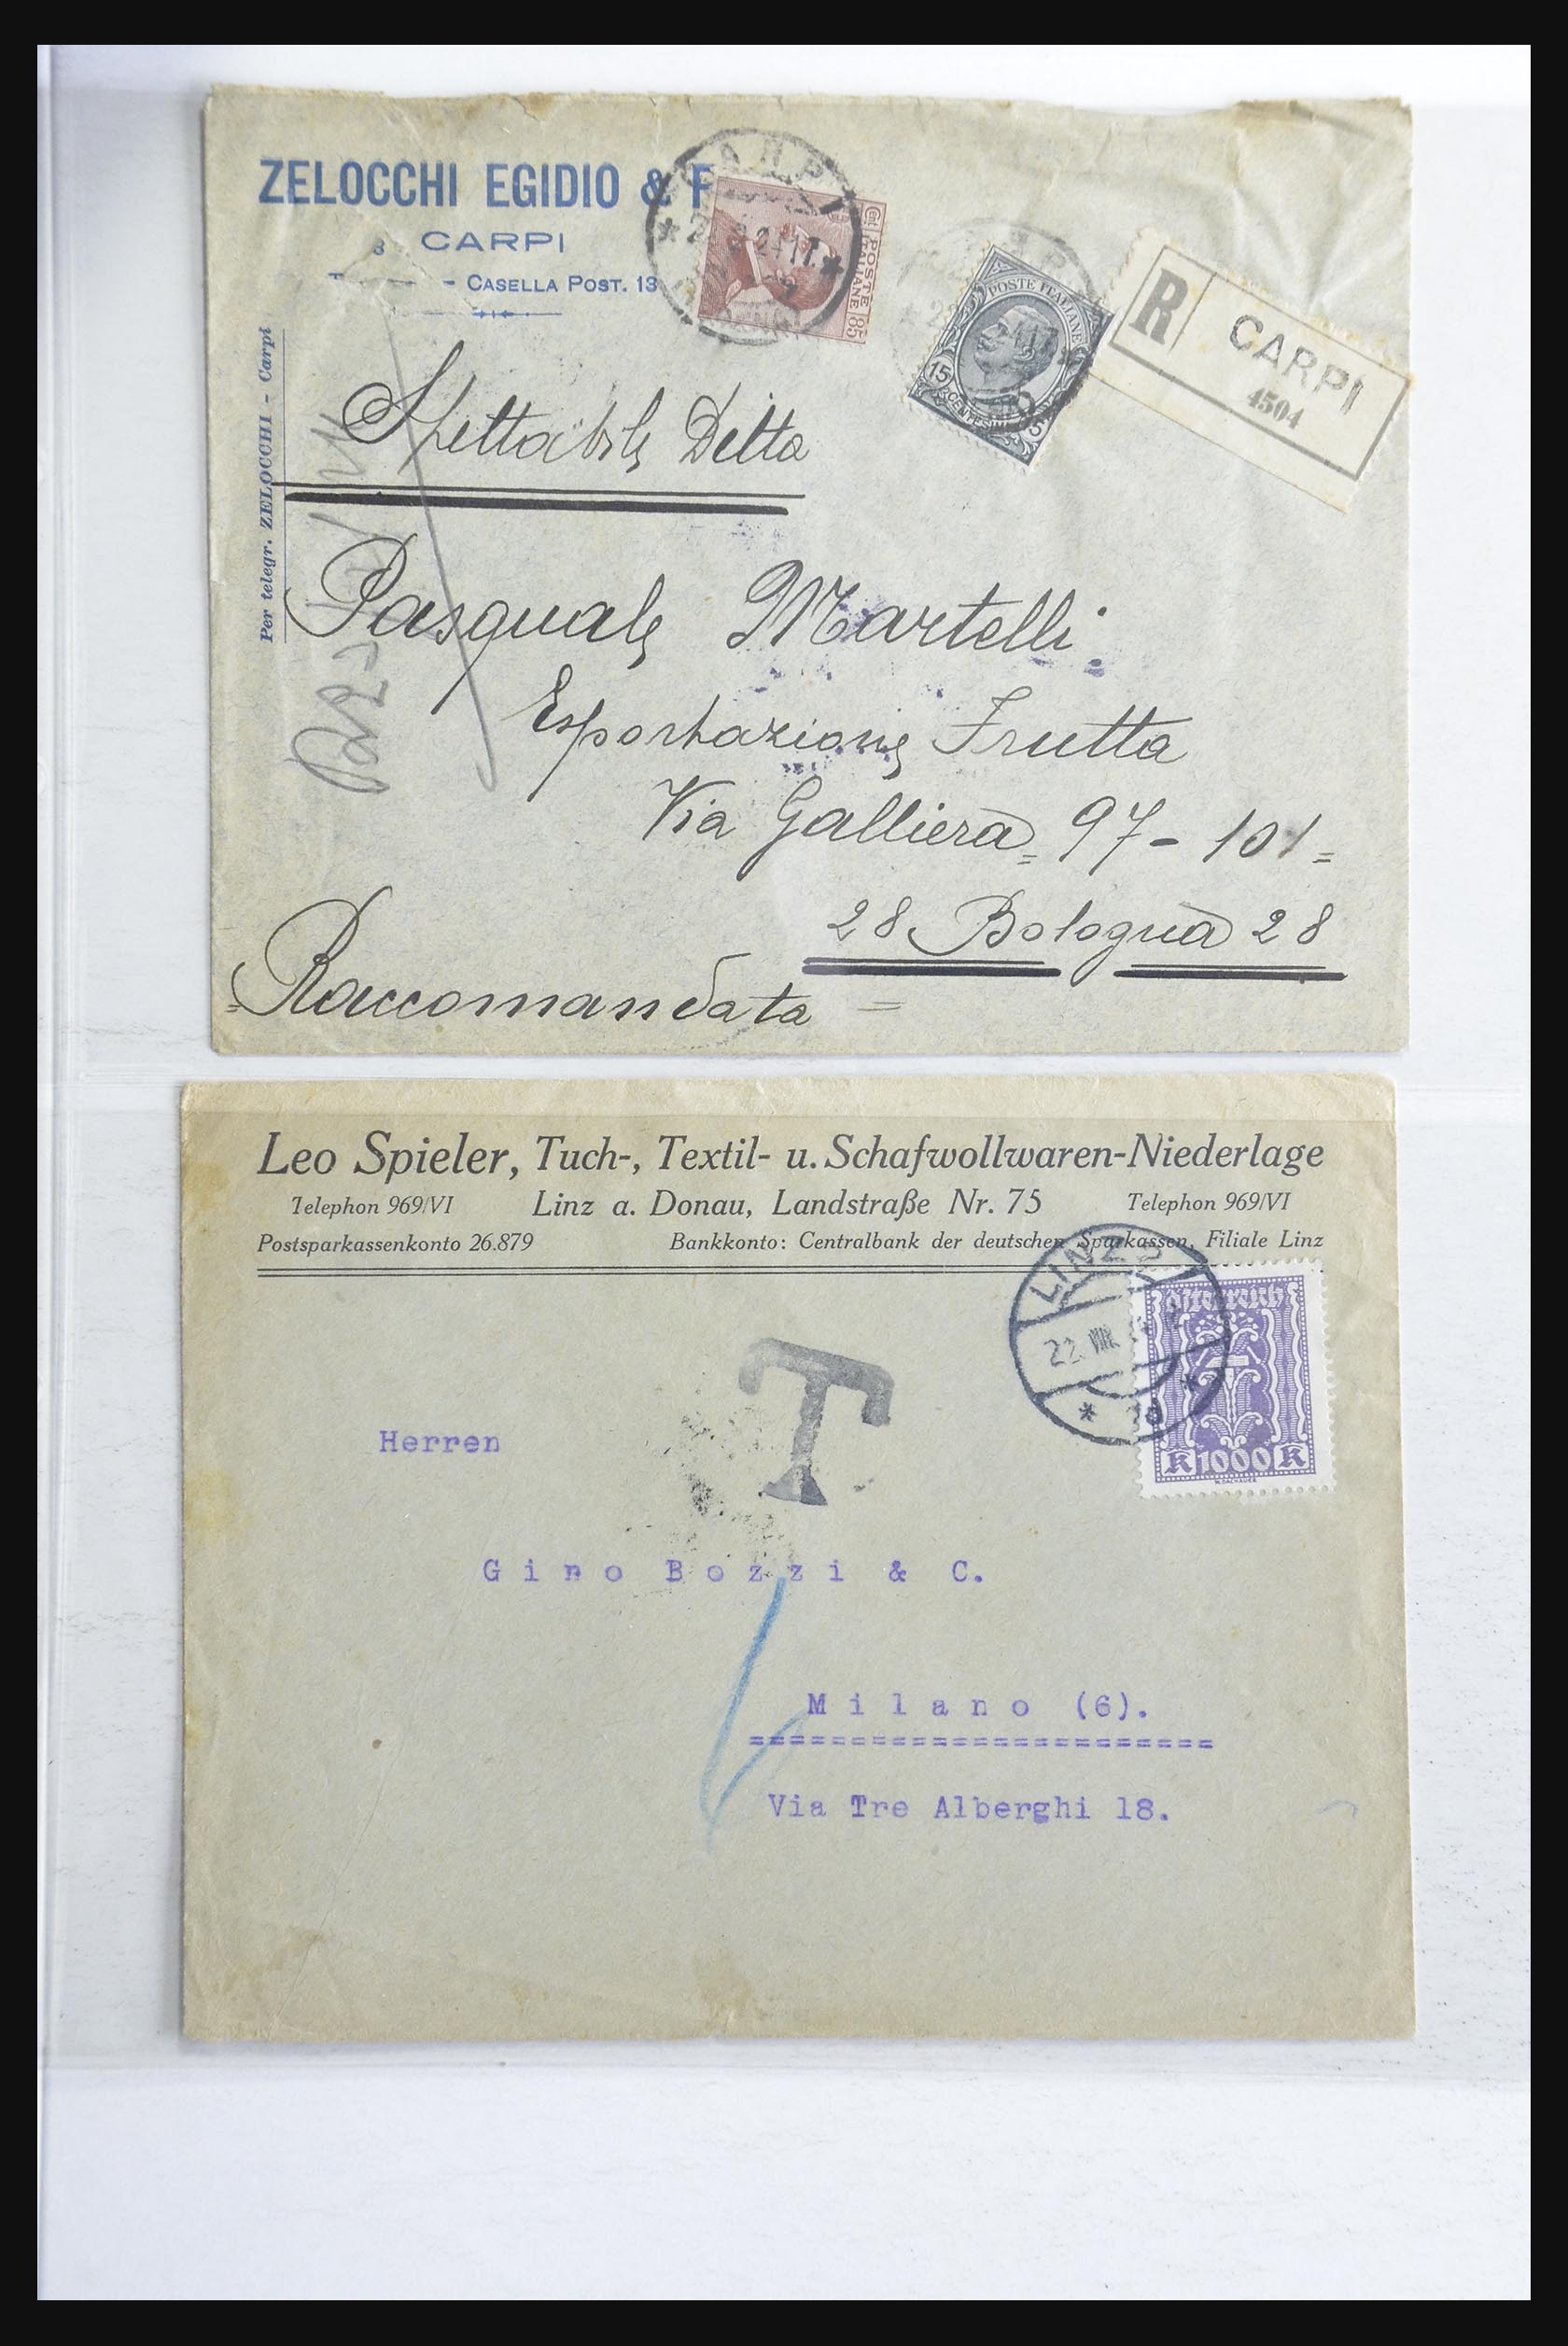 ZELOCCHI EGIDIO & F
CARPI
- CASELLA POST. 13
Per telegr. ZELOCCHI - Carpi
CARPI
POSTE ITALIANE 85
POSTE ITALIANE
15 CENTESIMI 15
R CARPI
4504
Spettabile Ditta
Pasquale Martelli
Esportazione Frutta
Via Galliera = 97 - 101 =
28 Bologna 28
= Raccomandata =
Leo Spieler, Tuch-, Textil- u. Schafwollwaren-Niederlage
Telephon 969/VI Linz a. Donau, Landstraße Nr. 75 Telephon 969/VI
Postsparkassenkonto 26.879 Bankkonto: Centralbank der deutschen Sparkassen, Filiale Linz
LINZ
22. VIII
Österreich
K 1000 K
T
Herren
Gino Bozzi & C.
Milano (6).
=======================
Via Tre Alberghi 18.